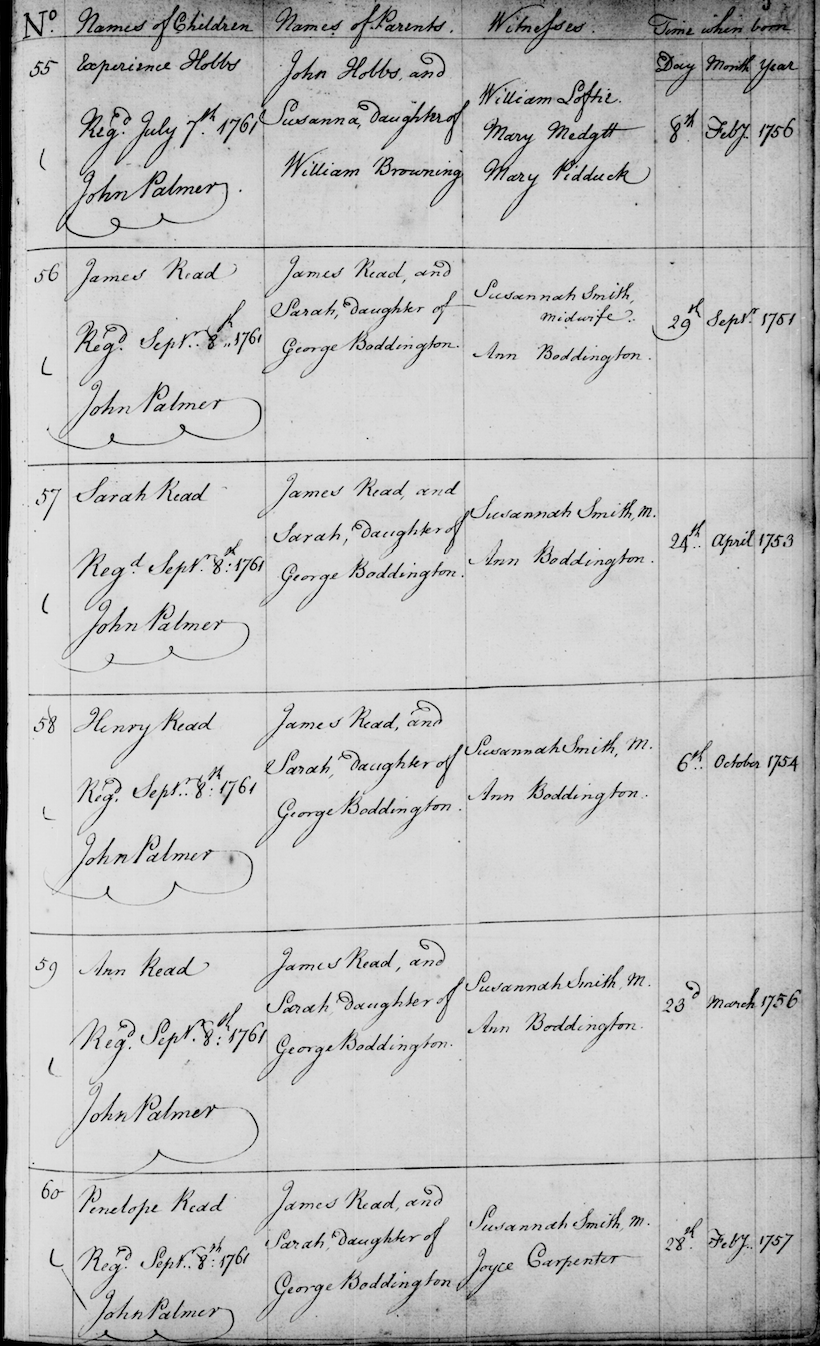 No. Names of Children Names of Parents. Witnesses. Time when born
Day Month Year
55 Experience Hobbs
Regd. July 7th. 1761
John Palmer
John Hobbs, and
Susanna, Daughter of
William Browning
William Loftie.
Mary Medgtt
Mary Pidduck
8th Feby. 1756
56 James Read
Regd. Septr. 8th. 1761
John Palmer
James Read, and
Sarah, Daughter of
George Boddington.
Susannah Smith,
midwife.
Ann Boddington.
29th Septr. 1751
57 Sarah Read
Regd Septr. 8th: 1761
John Palmer
James Read, and
Sarah, Daughter of
George Boddington.
Susannah Smith, M.
Ann Boddington.
24th. April 1753
58 Henry Read
Regd. Septr. 8th: 1761
John Palmer
James Read, and
Sarah, Daughter of
George Boddington.
Susannah Smith, M.
Ann Boddington.
6th. October 1754
59 Ann Read
Regd. Septr. 8th: 1761
John Palmer
James Read, and
Sarah, Daughter of
George Boddington.
Susannah Smith, M.
Ann Boddington.
23d March 1756
60 Penelope Read
Regd. Septr. 8th: 1761
John Palmer
James Read, and
Sarah, Daughter of
George Boddington
Susannah Smith, M.
Joyce Carpenter
28th. Feby. 1757